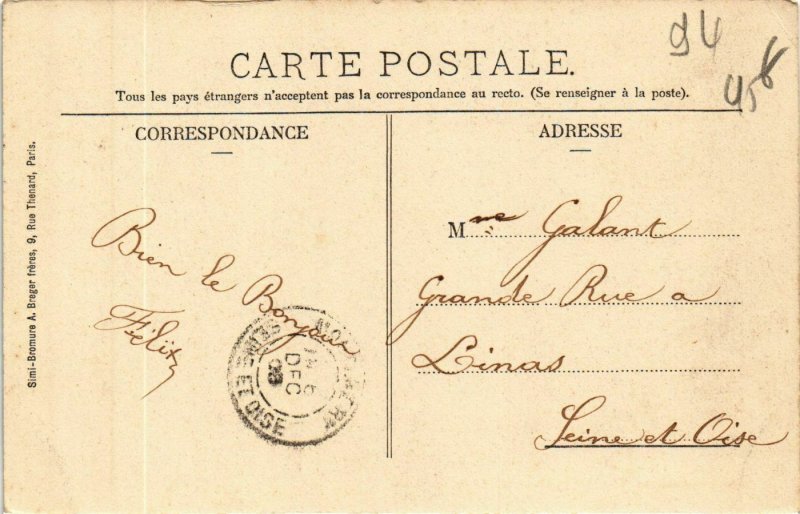 94
458
CARTE POSTALE.
Tous les pays étrangers n'acceptent pas la correspondance au recto. (Se renseigner à la poste).
CORRESPONDANCE
ADRESSE
Simi-Bromure A. Breger frères, 9, Rue Thenard, Paris.
Bien le Bonjour
Félix
Mme Galant
Grande Rue a
Linas
Seine et Oise
DEC
ET OISE